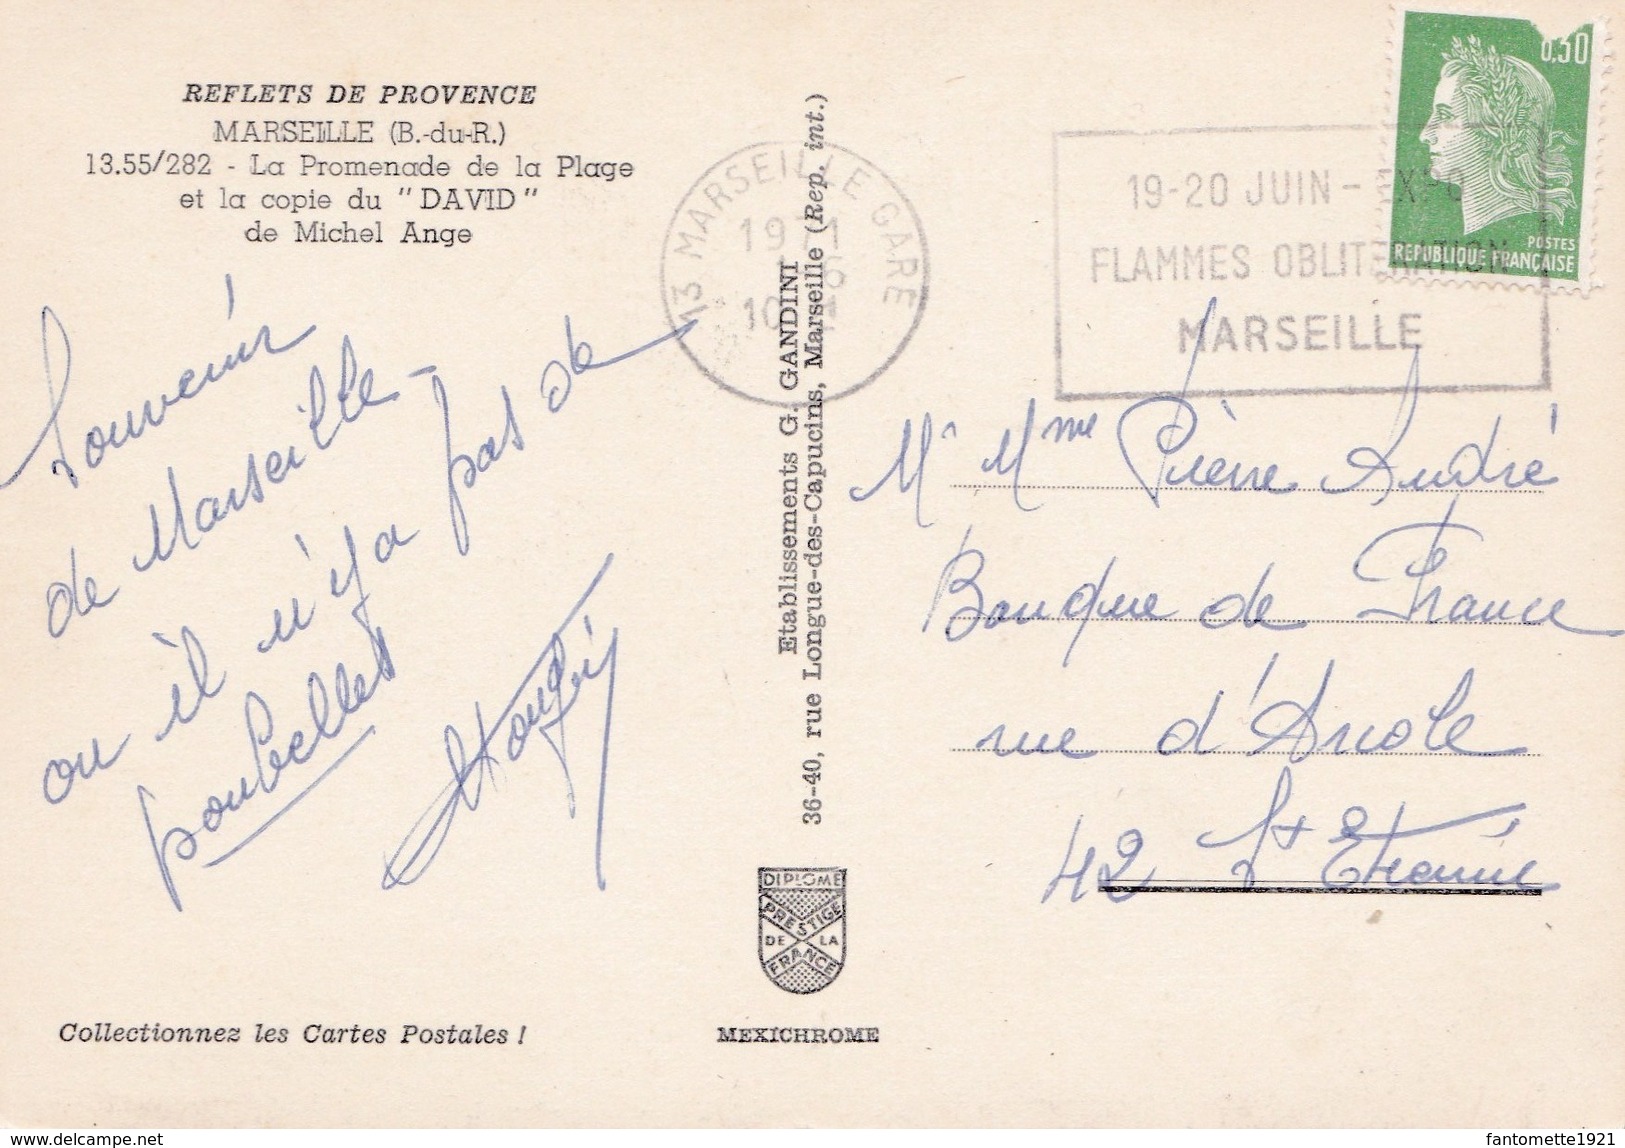 REFLETS DE PROVENCE
MARSEILLE (B.-du-R.)
13.55/282 - La Promenade de la Plage
et la copie du "DAVID"
de Michel Ange
Souvenir
de Marseille -
ou il n'y a pas de
poubelles
Etablissements G. GANDINI
36-40, rue Longue-des-Capucins, Marseille (Rep. int.)
13 MARSEILLE GARE
1971
19-20 JUIN - EXPO
FLAMMES OBLITERATION
MARSEILLE
0,30
POSTES
REPUBLIQUE FRANÇAISE
Mr Mme Pierre André
Banque de France
rue d'Arcole
42 St Etienne
DIPLOME
PRESTIGE
DE LA
FRANCE
Collectionnez les Cartes Postales !
MEXICHROME
delcampe.net
fantomette1921